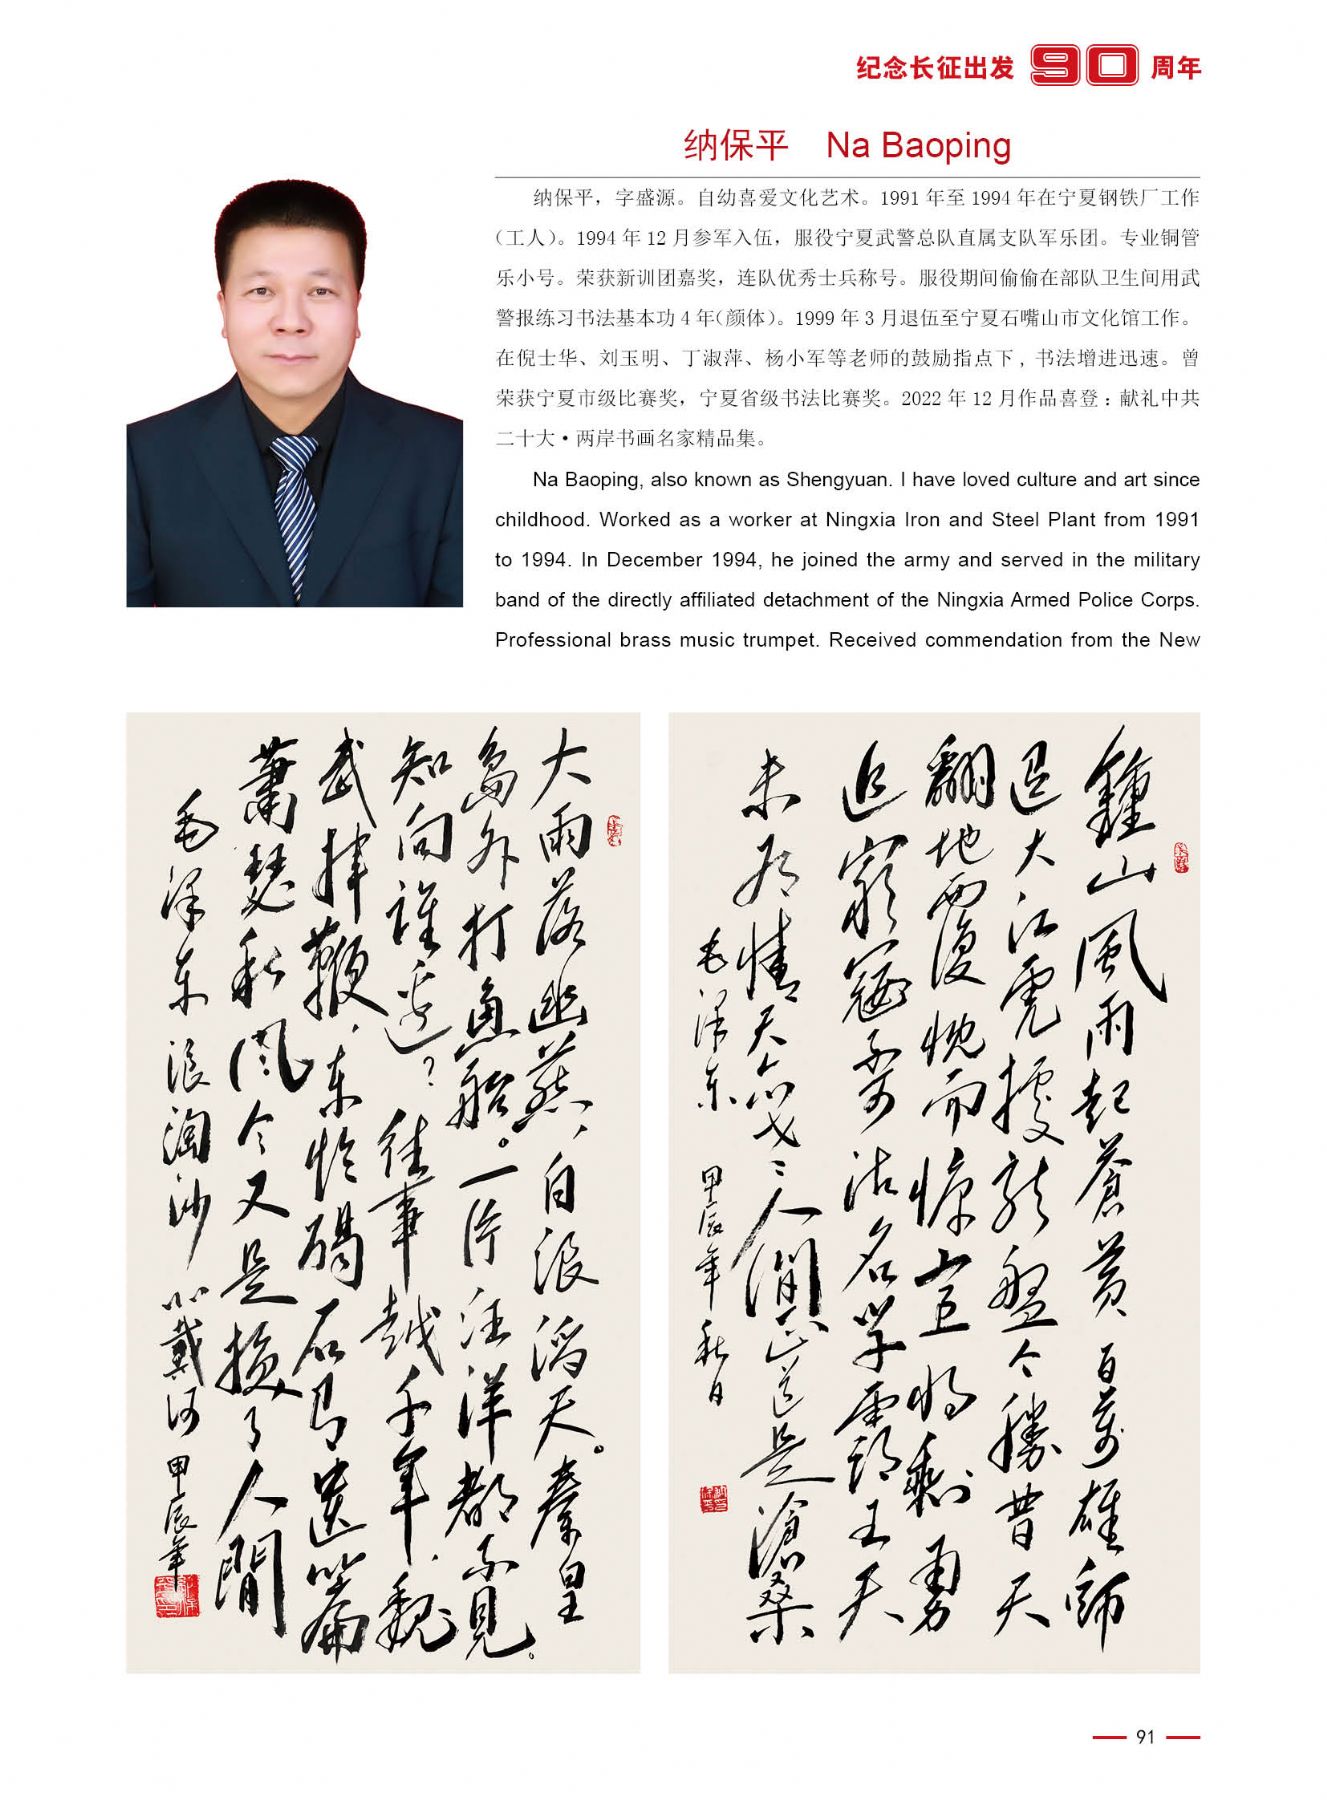 纪念长征出发 90 周年
纳保平 Na Baoping
纳保平，字盛源。自幼喜爱文化艺术。1991 年至 1994 年在宁夏钢铁厂工作
（工人）。1994 年 12 月参军入伍，服役宁夏武警总队直属支队军乐团。专业铜管
乐小号。荣获新训团嘉奖，连队优秀士兵称号。服役期间偷偷在部队卫生间用武
警报练习书法基本功 4 年（颜体）。1999 年 3 月退伍至宁夏石嘴山市文化馆工作。
在倪士华、刘玉明、丁淑萍、杨小军等老师的鼓励指点下，书法增进迅速。曾
荣获宁夏市级比赛奖，宁夏省级书法比赛奖。2022 年 12 月作品喜登：献礼中共
二十大·两岸书画名家精品集。
Na Baoping, also known as Shengyuan. I have loved culture and art since
childhood. Worked as a worker at Ningxia Iron and Steel Plant from 1991
to 1994. In December 1994, he joined the army and served in the military
band of the directly affiliated detachment of the Ningxia Armed Police Corps.
Professional brass music trumpet. Received commendation from the New
大雨落幽燕，白浪滔天。秦皇
島外打魚船。一片汪洋都不見。
知向誰邊？往事越千年，魏
武揮鞭，東臨碣石有遺篇
蕭瑟秋風今又是換了人間
毛澤东 浪淘沙 北戴河 甲辰年
鍾山風雨起蒼黃百萬雄師
過大江虎據龍盤今勝昔天
翻地覆慨而慷宜將剩勇
追窮寇不可沽名學霸王天
若有情天亦老人間正道是滄桑
毛澤东 甲辰年秋日
91